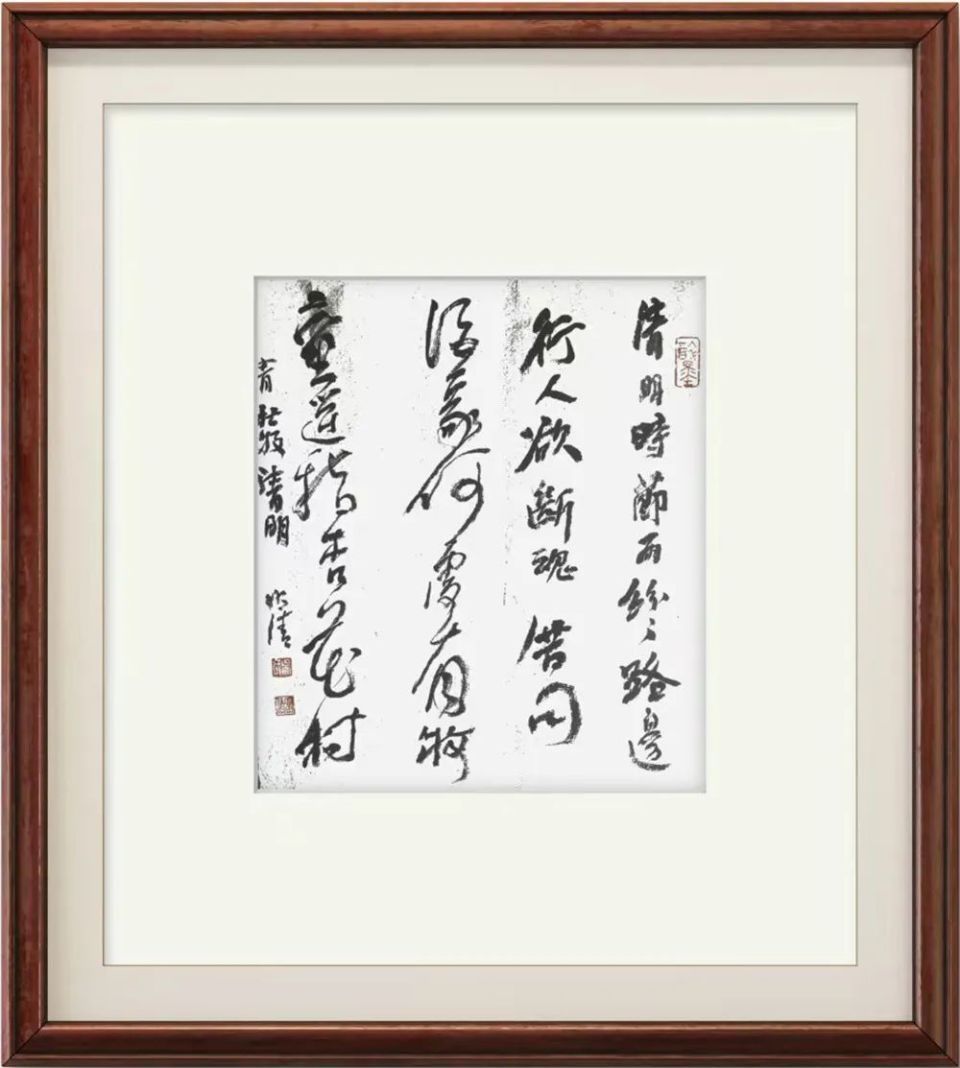 清明時節雨紛〻路邊
行人欲斷魂借問
酒家何處有牧
童遥指杏花村
杜牧清明